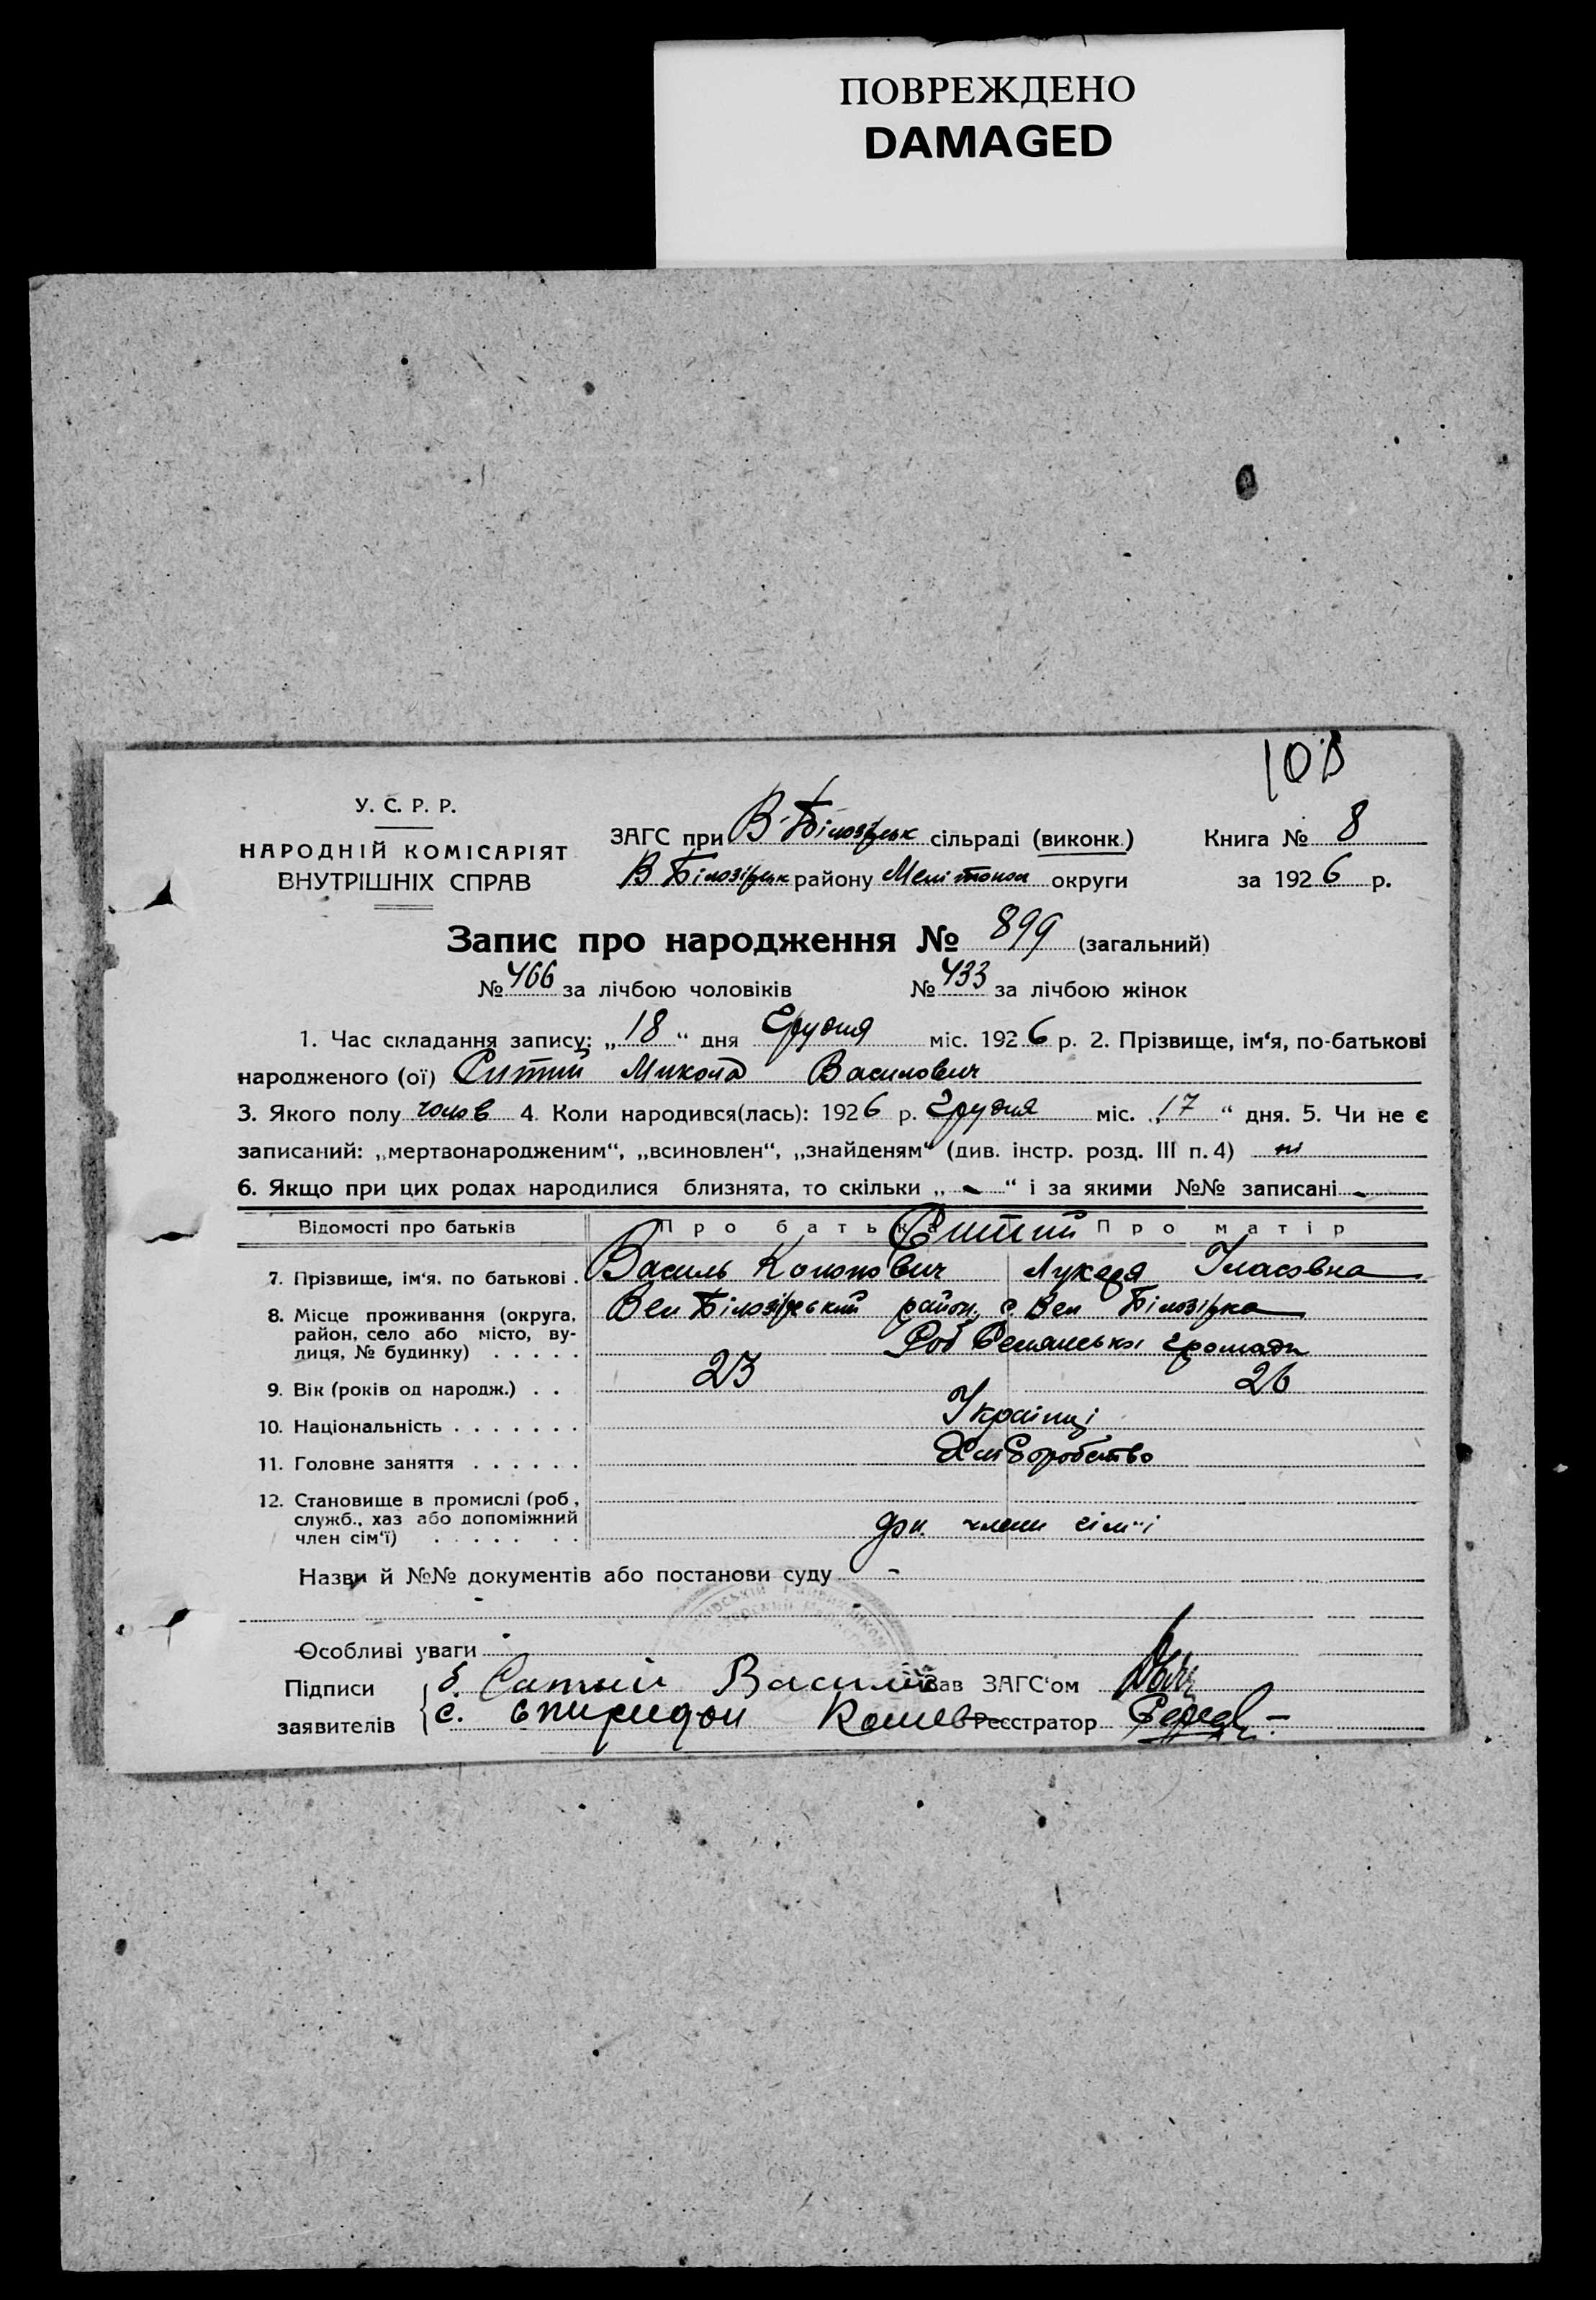 ПОВРЕЖДЕНО
DAMAGED
108
У. С. Р. Р.
НАРОДНІЙ КОМІСАРІЯТ
ВНУТРІШНІХ СПРАВ
ЗАГС при В-Білозірськ сільраді (виконк.)
Книга № 8
В Білозірськ району Мелітопол округи
за 1926 р.
Запис про народження № 899 (загальний)
№ 466 за лічбою чоловіків № 433 за лічбою жінок
1. Час складання запису: „18“ дня Грудня міс. 1926 р. 2. Прізвище, ім‘я, по-батькові
народженого (ої) Ситий Микола Василович
3. Якого полу чолов 4. Коли народився(лась): 1926 р. Грудня міс. „17“ дня. 5. Чи не є
записаний: „мертвонародженим“, „всиновлен“, „знайденям“ (див. інстр. розд. III п. 4) ні
6. Якщо при цих родах народилися близнята, то скільки „-“ і за якими №№ записані -
Відомості про батьків Про батька Про матір
Ситий
7. Прізвище, ім‘я, по батькові . Василь Кононович Лукеря Іласовна
8. Місце проживання (округа, район, село або місто, вулиця, № будинку) . . . . . Вел Білозірський район, с. Вел Білозірка
громади
9. Вік (років од народж.) . . 23 26
10. Національність . . . . . . . Українці
11. Головне заняття . . . . . . Хліборобство
12. Становище в промислі (роб.,
служб., хаз або допоміжний
член сім‘ї) . . . . . . . члени сім"ї
Назви й №№ документів або постанови суду -
Особливі уваги
Підписи б. Ситий Василий Зав ЗАГС‘ом
заявителів с. Спиридон Реєстратор